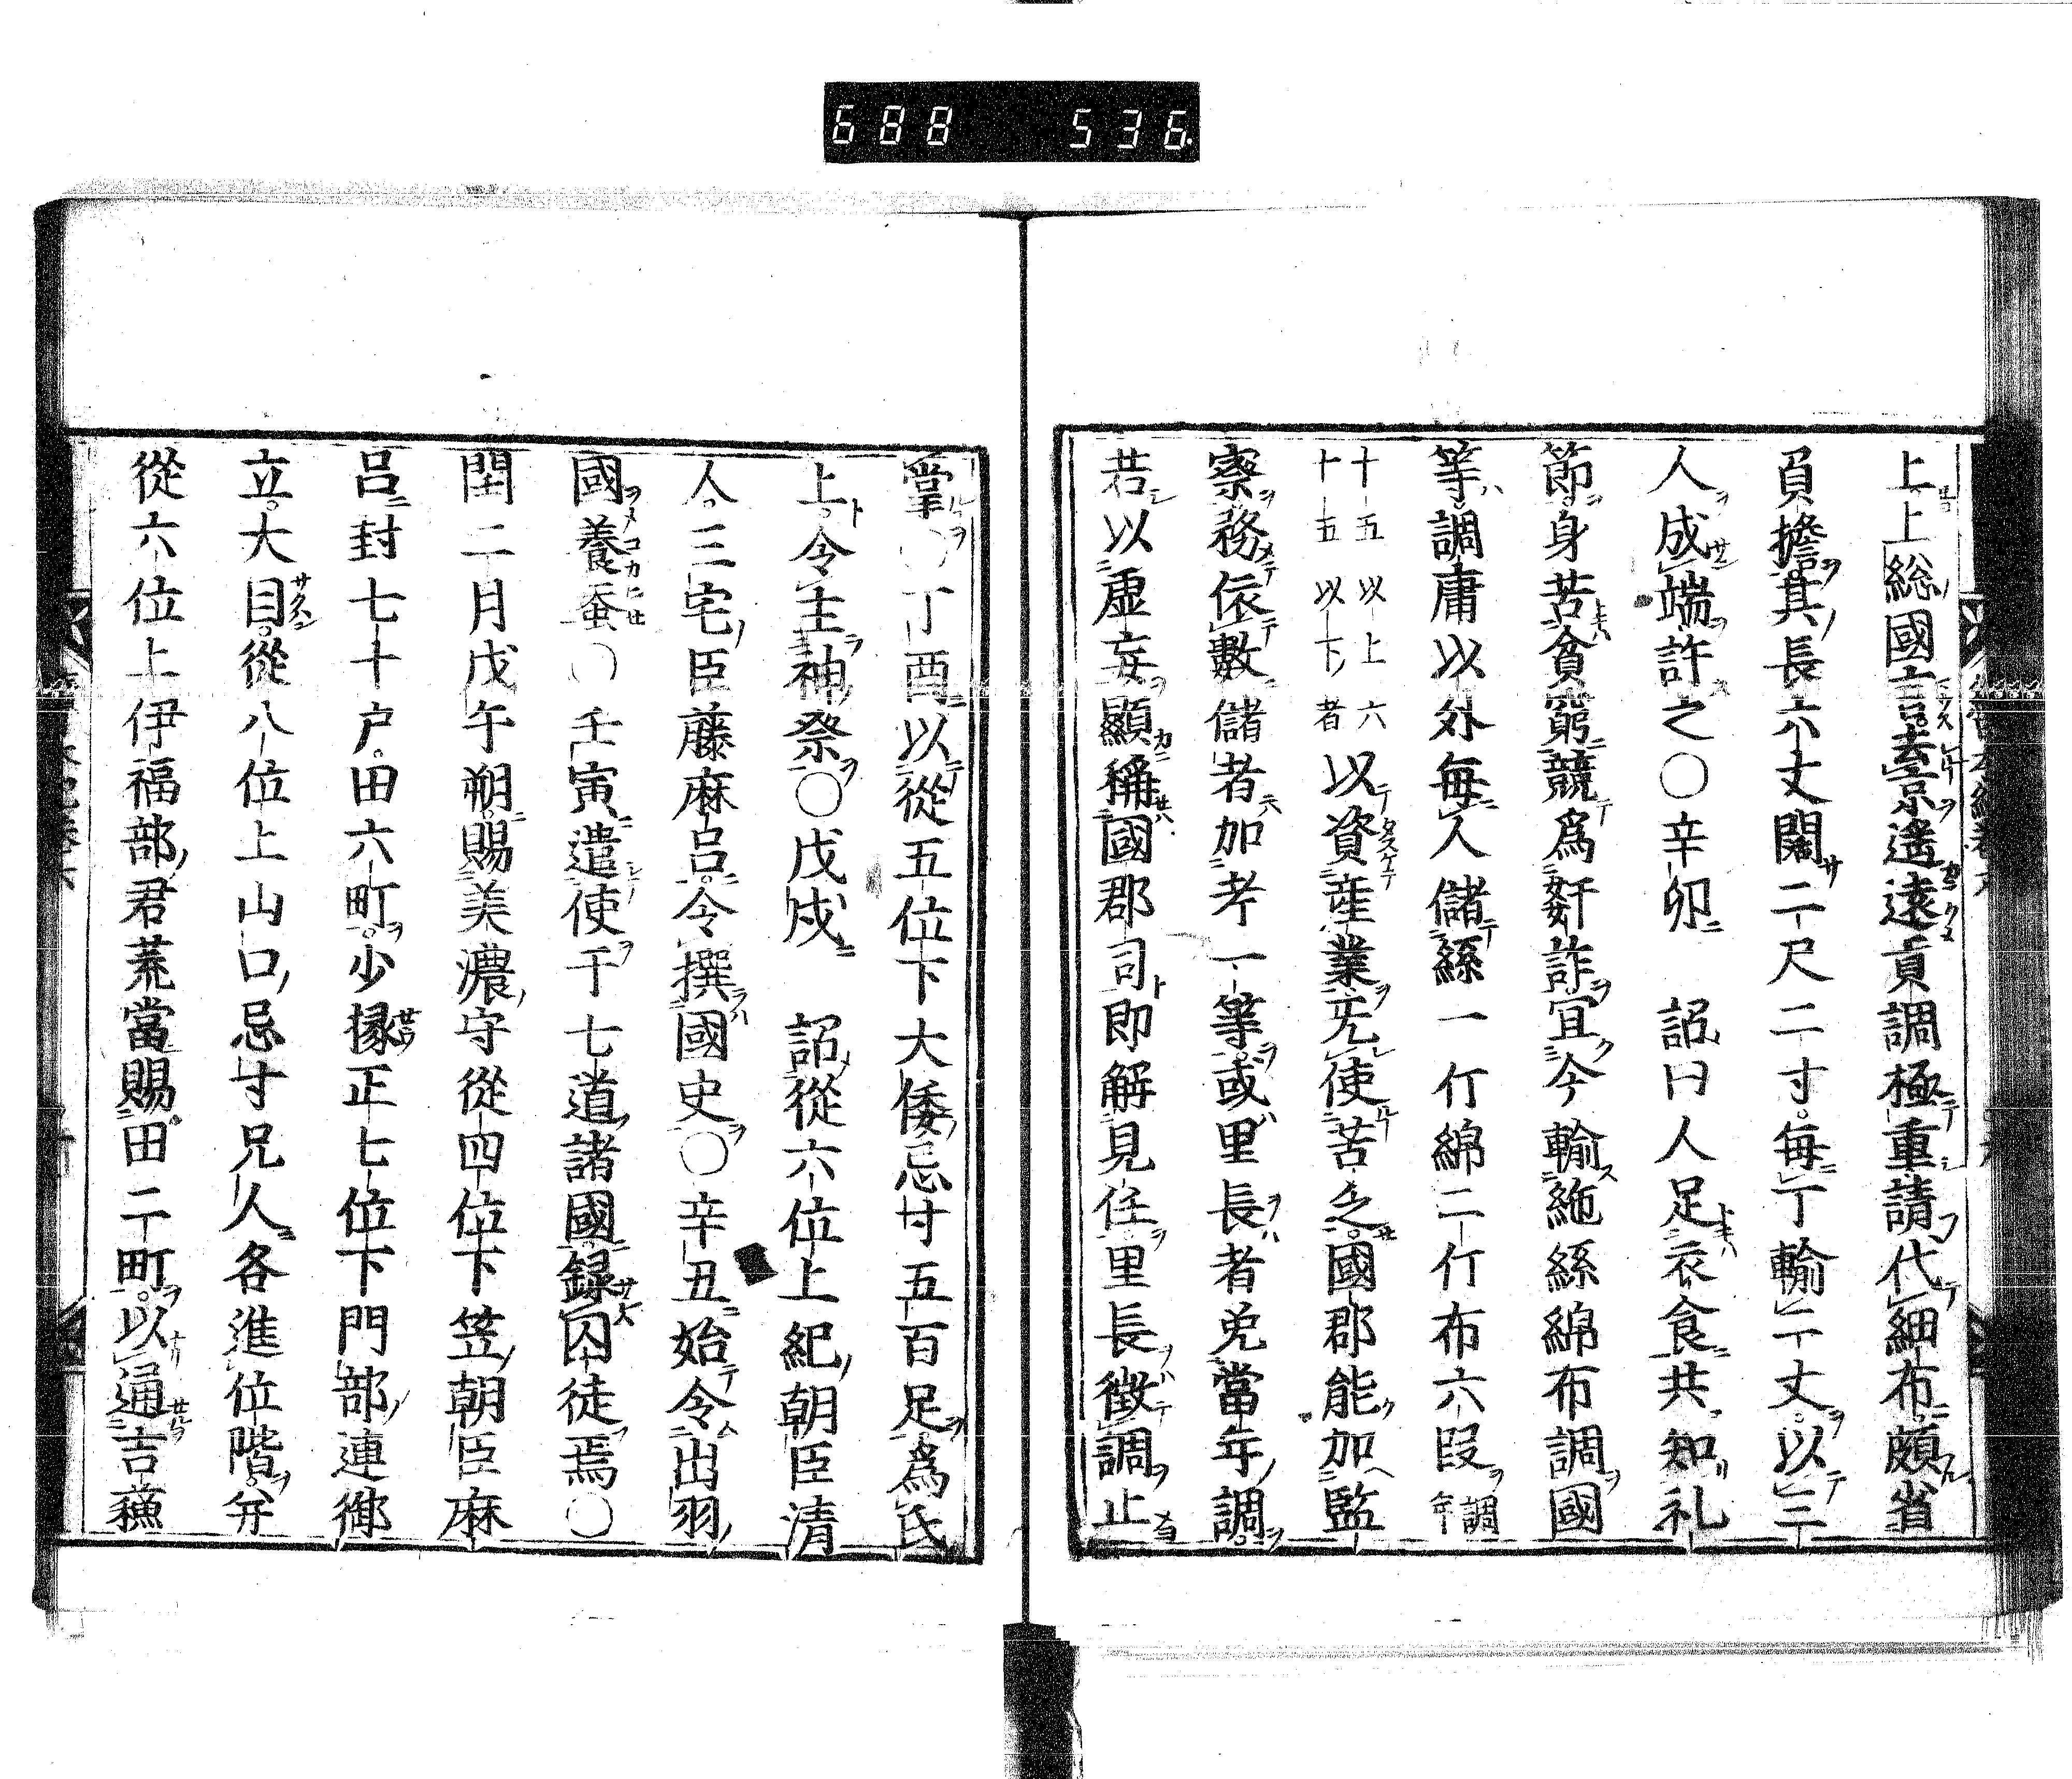 688 536.
上上総國言去京遙遠貢調極重請代細布頗省
負擔其長六丈闊二尺二寸毎丁輸二丈以三
人成端許之〇辛卯　詔曰人足衣食共知礼
節身苦貧窮競爲奸詐宜今輸絁絲綿布調國
等調庸以外毎人儲絲一斤綿二斤布六段調年
十五以上六十五以下者以資産業无使苦乏國郡能加監
察務依數儲者加考一等或里長者免當年調
若以虚妄顯稱國郡司即解見任里長徴調止
掌〇丁酉以從五位下大倭忌寸五百足爲氏
上令主神祭〇戊戌　詔從六位上紀朝臣清
人三宅臣藤麻呂令撰國史〇辛丑始令出羽
國養蚕〇壬寅遣使于七道諸國録囚徒焉〇
閏二月戊午朔賜美濃守從四位下笠朝臣麻
呂封七十戸田六町少掾正七位下門部連御
立大目從八位上山口忌寸兄人各進位階并
從六位上伊福部君荒當賜田二町以通吉蘇